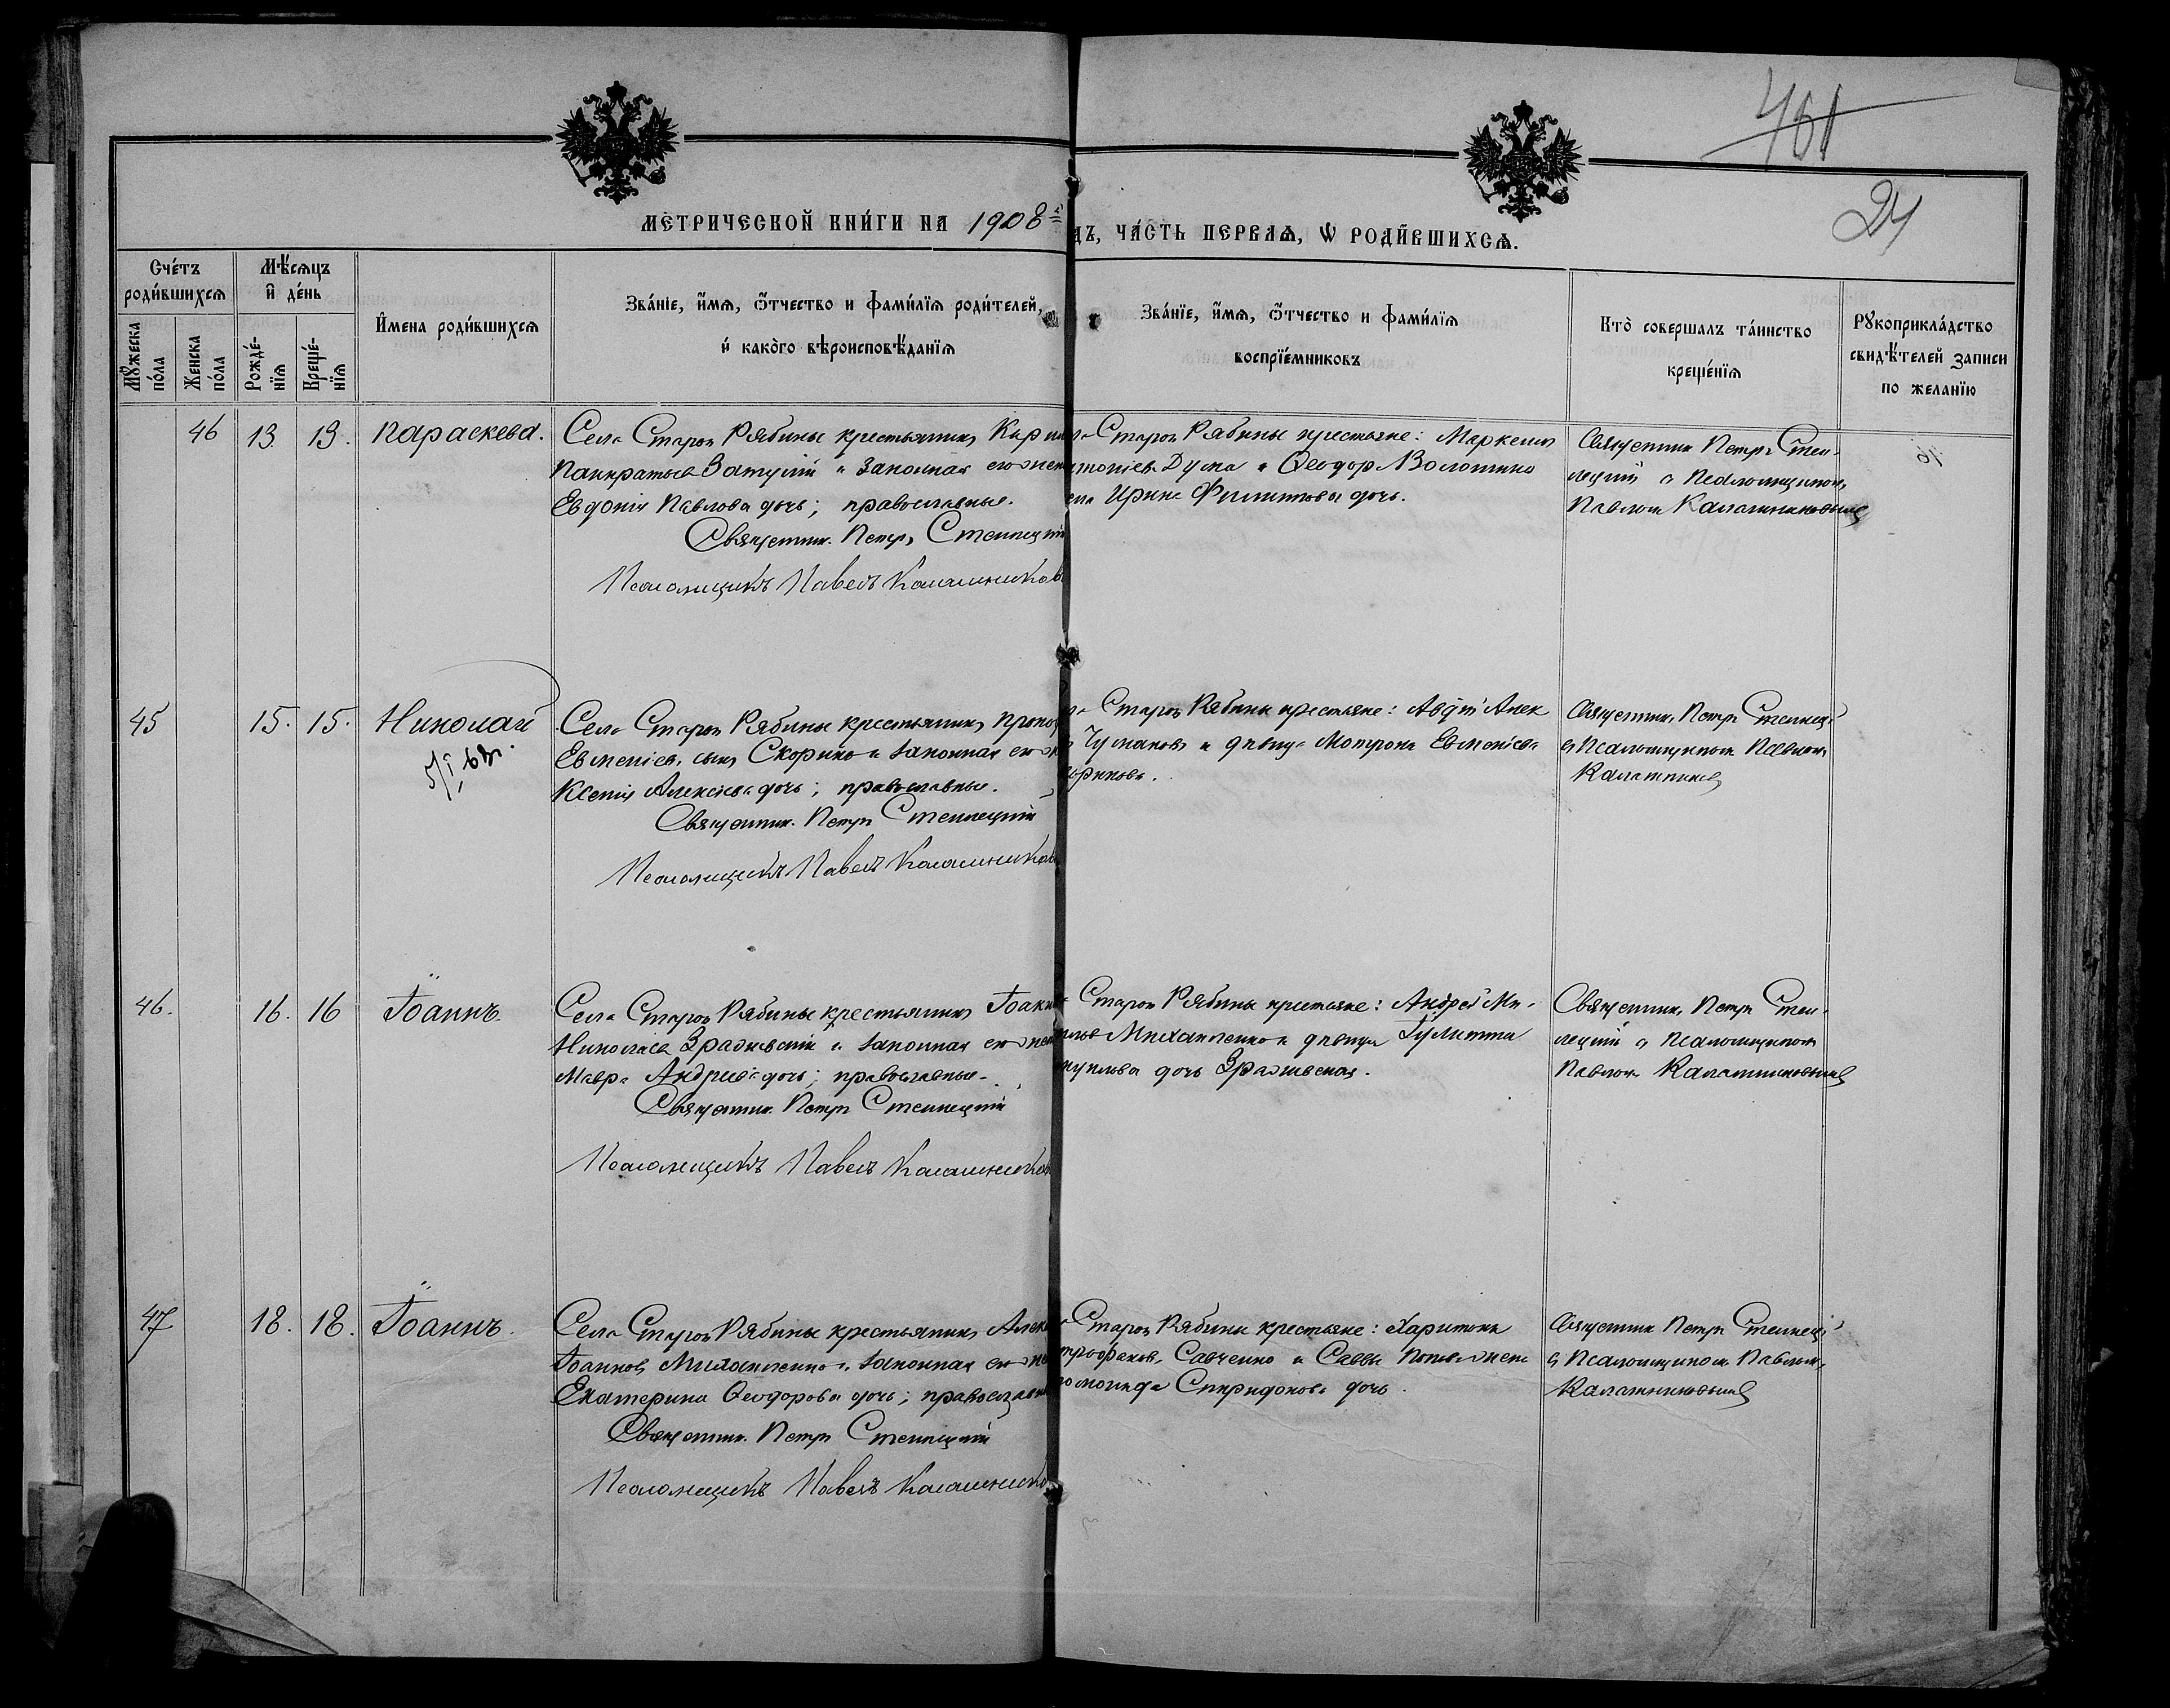 481
24
МЕТРИЧЕСКОЙ КНИ́ГИ НА 1908 й
ДЪ, ЧА́СТЬ ПЕРВАѦ, Ѡ РОДИ́ВШИХСѦ.
Сче́тъ роди́вшихсѧ
Мѣ́сѧцъ и҆ де́нь
Мꙋ́жеска по́ла
Же́нска по́ла
Рожде́-нїѧ
Креще́-нїѧ
И҆мена роди́вшихсѧ
Зва́нїе, и҆́мѧ, ѻ҆́тчество и фами́лїѧ роди́телей,
и҆ како́го вѣроисповѣ́данїѧ
Зва́нїе, и҆́мѧ, ѻ҆́тчество и фами́лїѧ
воспрїе́мниковъ
Кто̀ соверша́лъ та́инство
креще́нїѧ
Рꙋкоприкла́дство
свидѣ́телей записи
по желанїю
46 13 13. Параскева.
Села Старой Рябины крестьянинъ Кирил
Панкратьев Затулій и законная его жен
Евдокія Павлова дочь; православные.
Священник Петръ Стеллецкій
Псаломщикъ Павелъ Калашников
Старой Рябины крестьяне: Маркелл
Дума и Ѳеодор Волошина
Ирина Филиппова дочь.
Священник Петръ Стел-
лецкій с псаломщиком
Павлом Калашниковым
45 15. 15. Николай
Села Старой Рябины крестьянинъ Прокоп
Евменіев сын Скорик и законная его ж
Ксенія Алексѣева дочь; православные.
Священник Петръ Стеллецкій
Псаломщикъ Павелъ Калашников
Старой Рябины крестьяне: Авдій Алек
Чумаков и дѣвица Мотрона Евменіева
орикова.
Священник Петръ Стеллецкі
с псаломщиком Павлом
Калашников
46. 16. 16 Іоаннъ.
Села Старой Рябины крестьянинъ Іоанн
Николаев Зражевскій и законная его жен
Мавра Андреева дочь; православные.
Священник Петръ Стеллецкій
Псаломщикъ Павелъ Калашников
Старой Рябины крестьяне: Андрей Ми-
Михайленко и дѣвица Іулитта
дочь Зражевская.
Священник Петръ Стел-
лецкій с псаломщиком
Павлом Калашниковым
47 18. 18. Іоаннъ.
Села Старой Рябины крестьянинъ Алек
Іоаннов Михайленко и законная его же
Екатерина Ѳеодорова дочь; православн
Священник Петръ Стеллецкій
Псаломщикъ Павелъ Калашнико
Старой Рябины крестьяне: Харитон
трофанов Савченко и Саввы жена
Спиридонова дочь.
Священник Петръ Стеллецкі
с псаломщиком Павлом
Калашниковым